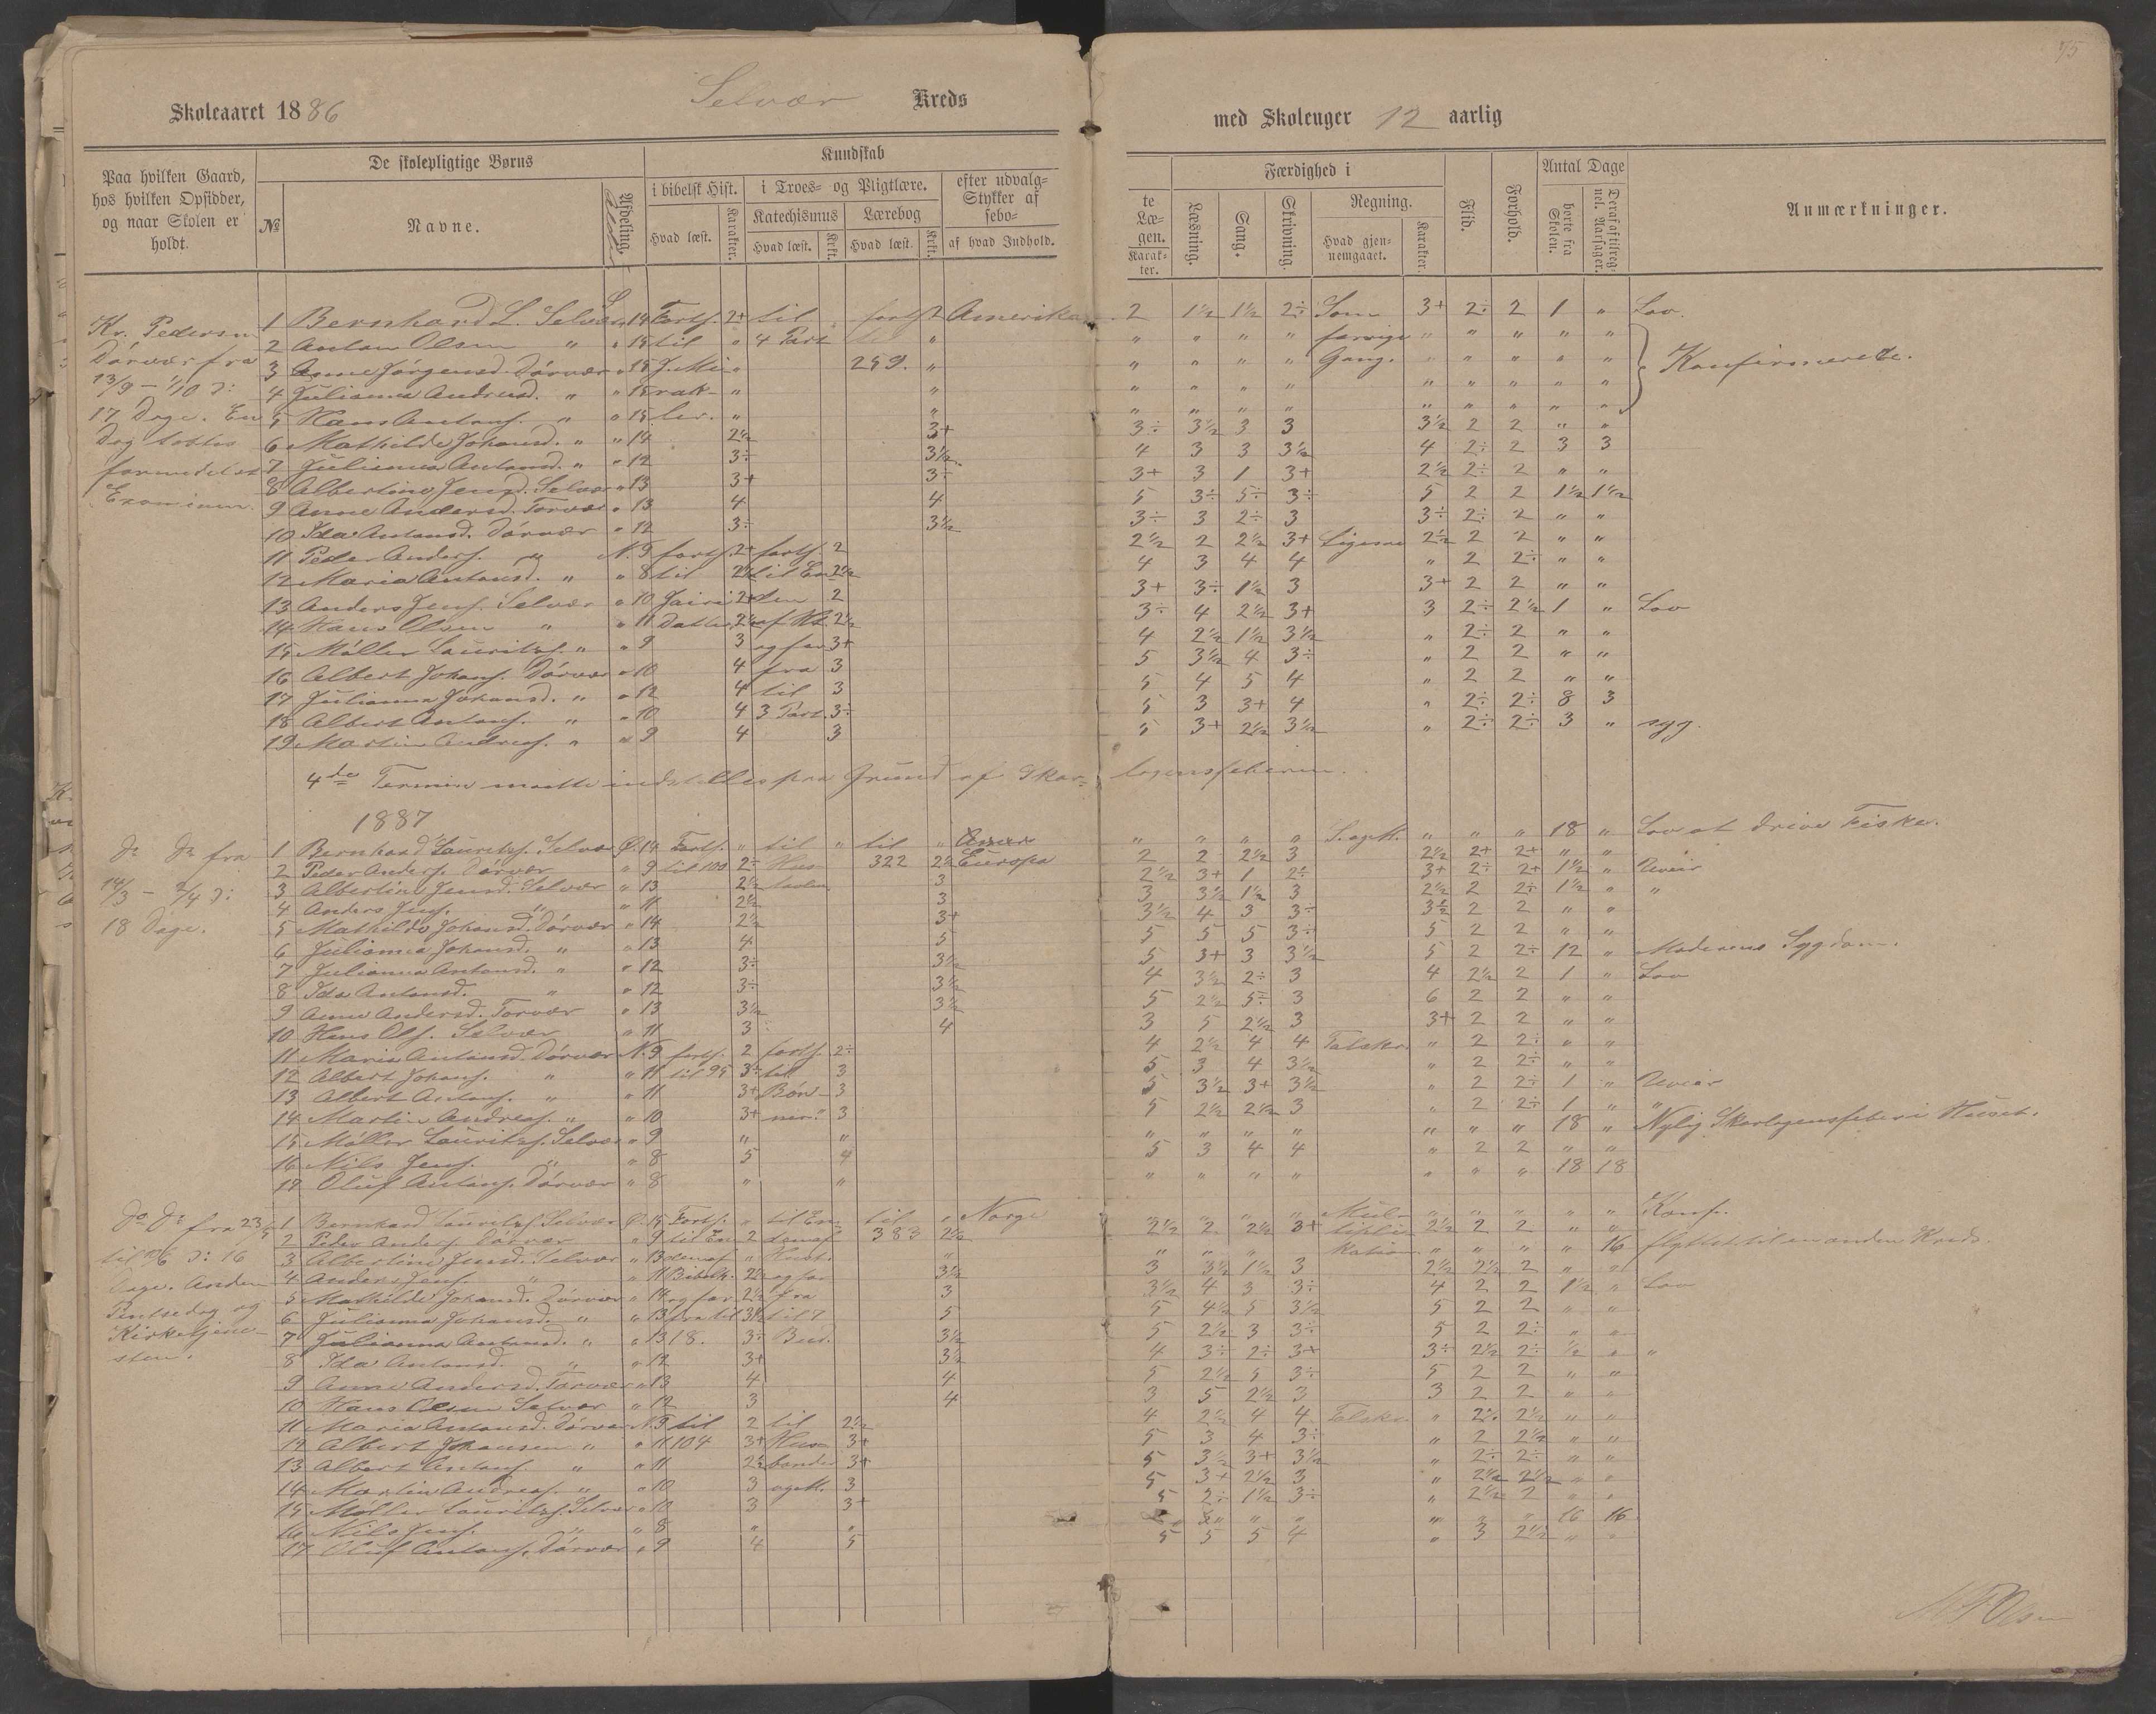 75
Skoleaaret 1886 Selvær Kreds med Skoleuger 12 aarlig
Paa hvilken Gaard, hos hvilken Opsidder, og naar Skolen er holdt.
De skolepligtige Børns
№ Navne. Afdeling. Alder
Kundskab
i bibelsk Hist. i Troes- og Pligtlære. efter udvalg- te
Stykker af Læ-
sebo- gen.
Hvad læst. Karakter. Katechismus Hvad læst. Krkt. Lærebog Hvad læst. Krkt. af hvad Indhold. Karak-ter.
Færdighed i
Læsning. Sang. Skrivning. Regning. Hvad gjen-nemgaaet. Karakter.
Flid. Forhold. Antal Dage borte fra Skolen. Deraf aftilreg-nel. Aarsager. Anmærkninger.
Kr. Pedersen
Dørvær fra
13/9 – 1/10 ɔ:
17 Dage. En
Dag tabtes
formedelst
Examinen.
1 Bernhard L. Selvær 14 Forts. 2+ til forts 2 Amerika 2 1½ 1½ 2÷ Som 3+ 2÷ 2 1 " Lov.
2 Anton Olsen " " 15 til " 4 Part " " " " " forrige " " " " "
3 Anne Jørgensd. Dørvær " 15 J. Mi " 259. " " " " " Gang. " " " " " Konfirmerede.
4 Julianna Andreasd. " " 15 rak- " " " " " " " " " "
5 Hans Antons. " " 15 ler. " " " " " " " " " " "
6 Mathilde Johansd. " " 14 2½ 3+ 3÷ 3½ 3 3 3½ 2 2 " "
7 Julianna Antonsd. " " 12 3÷ 3½ 4 3 3 3½ 4 2÷ 2 3 3
8 Albertine Jensd. Selvær " 13 3+ 3÷ 3+ 3 1 3+ 2½ 2÷ 2 " "
9 Anne Andersd. Torvær " 13 4 4 5 3÷ 5÷ 3÷ 5 2 2 1½ 1½
10 Ida Antonsd. Dørvær " 12 3÷ 3½ 3÷ 3 2÷ 3 3÷ 2÷ 2 " "
11 Peder Anders. " N. 9 forts. 2+ forts. 2 2½ 2 2½ 3+ Ligesaa 2½ 2 2 " "
12 Maria Antonsd. " " 8 til 2½ til En 2½ 4 3 4 4 " 2 2÷ " "
13 Anders Jens. Selvær " 10 Jairi 2+ den 2 3+ 3÷ 1½ 3 3+ 2 2 " "
14 Hans Olsen " " 11 Datter. 2½ af Kt. 2½ 3÷ 4 2½ 3+ 3 2÷ 2½ 1 " Lov
15 Møller Lauritzs. " " 9 3 og for 3+ 4 2½ 1½ 3½ " 2÷ 2 " "
16 Albert Johans. Dørvær " 10 4 fra 3 5 3½ 4 3÷ " 2 2 " "
17 Julianna Johansd. " " 12 4 til 3 5 4 5 4 " 2 2 " "
18 Albert Antons. " " 10 4 3 Part. 3÷ 5 3 3+ 4 " 2÷ 2÷ 8 3
19 Martin Andreas. " " 9 4 3 5 3+ 2½ 3½ " 2÷ 2÷ 3 " syg.
4de Termin maatte indstilles paa Grund af Skar-lagensfeberen.
1887
Do Do fra
14/3 – 2/4 ɔ:
18 Dage.
1 Bernhard Lauritzs. Selvær Ø. 14 Forts. " til " til " " " " " " " " 18 " Lov at drive Fiske.
2 Peder Anders. Dørvær " 9 til 100 2÷ Hus 322 2½ Europa 2 2 2½ 3 2½ 2+ 2+ " "
3 Albertine Jensd. Selvær " 13 2½ tavlen 3 2½ 3+ 1 2÷ 3+ 2÷ 2+ 1½ " Uveir
4 Anders Jens. " " 11 2½ 3 3 3½ 1½ 3 2½ 2 2÷ 1½ " "
5 Mathilde Johansd. Dørvær " 14 2½ 3+ 3½ 4 3 3÷ 3½ 2 2 " "
6 Julianna Johansd. " " 13 4 5 5 5 5 3÷ 5 2 2 " "
7 Julianna Antonsd. " " 12 3÷ 3½ 5 3+ 3 3½ 5 2 2÷ 12 " Moderens Sygdom.
8 Ida Antonsd. " " 12 3÷ 3½ 4 3½ 2÷ 3 4 2½ 2 1 " Lov
9 Anne Andersd. Torvær " 13 3½ 3½ 5 2½ 5÷ 3 6 2 2 " "
10 Hans Ols. Selvær " 11 3 4 3 5 2½ 3 3+ 2 2 " "
11 Maria Antonsd. Dørvær N. 9 forts. 2 forts. 2÷ 4 2½ 4 4 Talskr. " 2 2÷ " "
12 Albert Johans. " " 11 til 95 3½ til 3 5 3 4 3½ " 2 2÷ " "
13 Albert Antons. " " 11 3+ Bøn- 3 5 3½ 3+ 3½ " 2 2÷ 1 " Uveir
14 Martin Andreas. " " 10 3+ nen" 3 5 2½ 2½ 3 " 2 2÷ 1 " "
15 Møller Lauritzs. Selvær " 9 " " " " " " " " " 18 " Nylig Skarlagensfeber i Huset.
16 Nils Jens. " " 8 5 4 5 3 4 4 " 2 2 " "
17 Oluf Antons. Dørvær " 8 " " " " " " " " " 18 18
Do Do fra 23/5
til ɔ: 16
Dage. Anden
Pintsedag og
Kirketjene-
sten.
1 Bernhard Lauritzs. Selvær Ø. 15 Forts. " til En til " Norge " " " " Mul- " " " " " Konf.
2 Peder Anders. Dørvær " 9 til En 2 denaf 383 2½ 2½ 2 2½ 3+ tipli- 2½ 2 2 " "
3 Albertine Jensd. Selvær " 13 denaf " Hust. " " " " kation " " " " 16 flyttet til en anden Kreds.
4 Anders Jens. " " 11 Bibelh. 2½ og for 3½ 3 3½ 1½ 3 2½ 2½ 2 " "
5 Mathilde Johansd. Dørvær " 14 og for 2½ fra 3 3½ 4 3 3÷ 4 2 2 1½ " Lov
6 Julianna Johansd. " " 13 fra til 3½ til 7 5 5 4½ 5 3½ 5 2 2 " "
7 Julianna Antonsd. " " 13 18. 3÷ Bud. 3½ 5 2½ 3 3÷ 5 2 2÷ " "
8 Ida Antonsd. " " 12 3+ 3½ 4 3÷ 2÷ 3+ 3÷ 2½ 2÷ ½ " "
9 Anne Andersd. Torvær " 13 4 4 5 2½ 5 3÷ 5 2 2 " "
10 Hans Olsen Selvær " 12 3 4 3 5 2½ 3 3 2 2 " "
11 Maria Antonsd. Dørvær N. 9 til 2 til 2½ 4 2½ 4 4 Talskr. " 2½ 2½ " "
12 Albert Johansen " " 11 104 3+ Hus- 3+ 5 3 4 3÷ " 2 2½ " "
13 Albert Antons. " " 11 2½ bonder 3+ 5 3½ 3+ 3½ " 2÷ 2÷ " "
14 Martin Andreas. " " 10 3 3 5 3+ 2½ 3 " 2½ 2½ " "
15 Møller Lauritzs. Selvær " 10 3 3+ 5 2÷ 1½ 3÷ " 2½ 2 " "
16 Nils Jens. " " 8 " " " " " " " " " 16 16
17 Oluf Antons. Dørvær " 9 4 5 5 5 5 4 " 3 2½ " "
Olsen